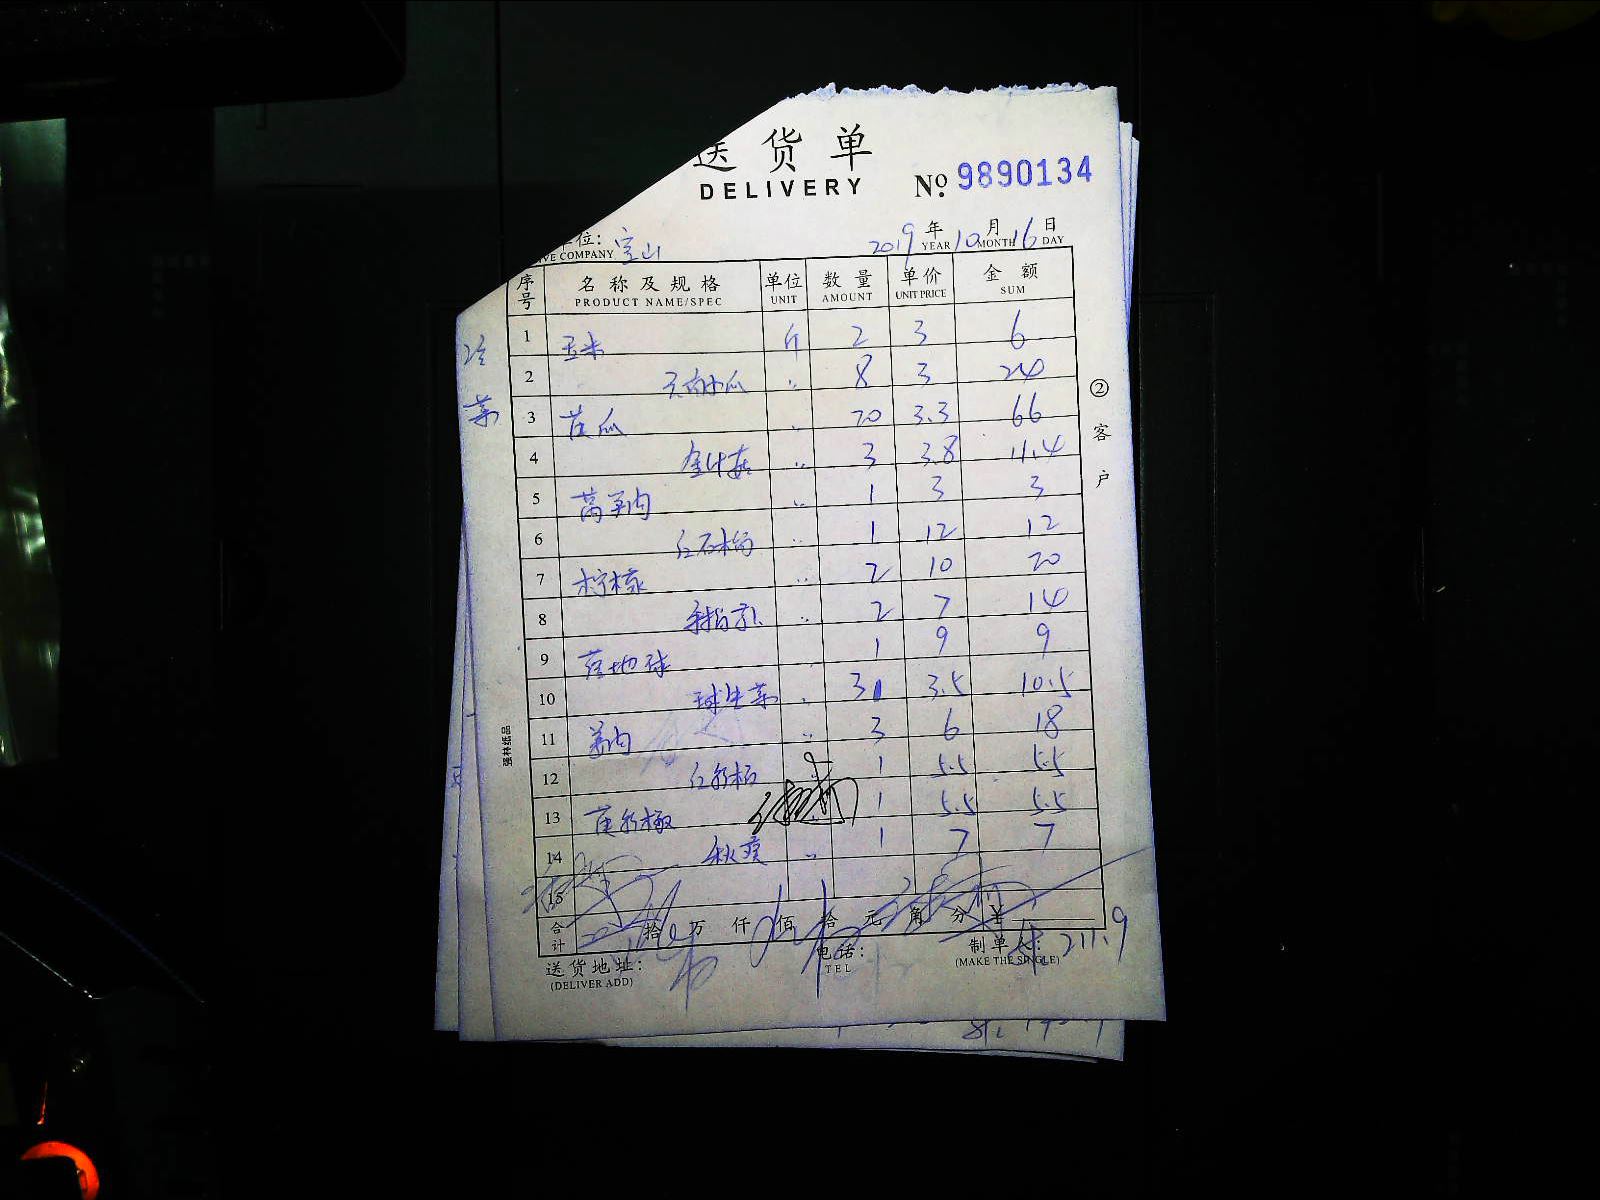 送货单
DELIVERY
No. 9890134
单位: 宝山
2019年10月16日
IVE COMPANY YEAR MONTH DAY
序号 名称及规格 单位 数量 单价 金额
PRODUCT NAME/SPEC UNIT AMOUNT UNIT PRICE SUM
冷菜
1 玉米 斤 2 3 6
2 〃 8 3 24
3 黄瓜 〃 20 3.3 66
4 金针菇 〃 3 3.8 11.4
5 莴笋肉 〃 1 3 3
6 红石榴 〃 1 12 12
7 柠檬 〃 2 10 20
8 〃 2 7 14
9 落地球 1 9 9
10 球生菜 〃 3 3.5 10.5
11 姜肉 〃 3 6 18
12 红彩椒 〃 1 5.5 5.5
13 黄彩椒 〃 1 5.5 5.5
14 秋葵 〃 1 7 7
15
合计 拾 万 仟 佰 拾 元 角 分 ¥
211.9
送货地址: 电话: 制单人:
(DELIVER ADD) TEL (MAKE THE SINGLE)
②客户
强林纸品